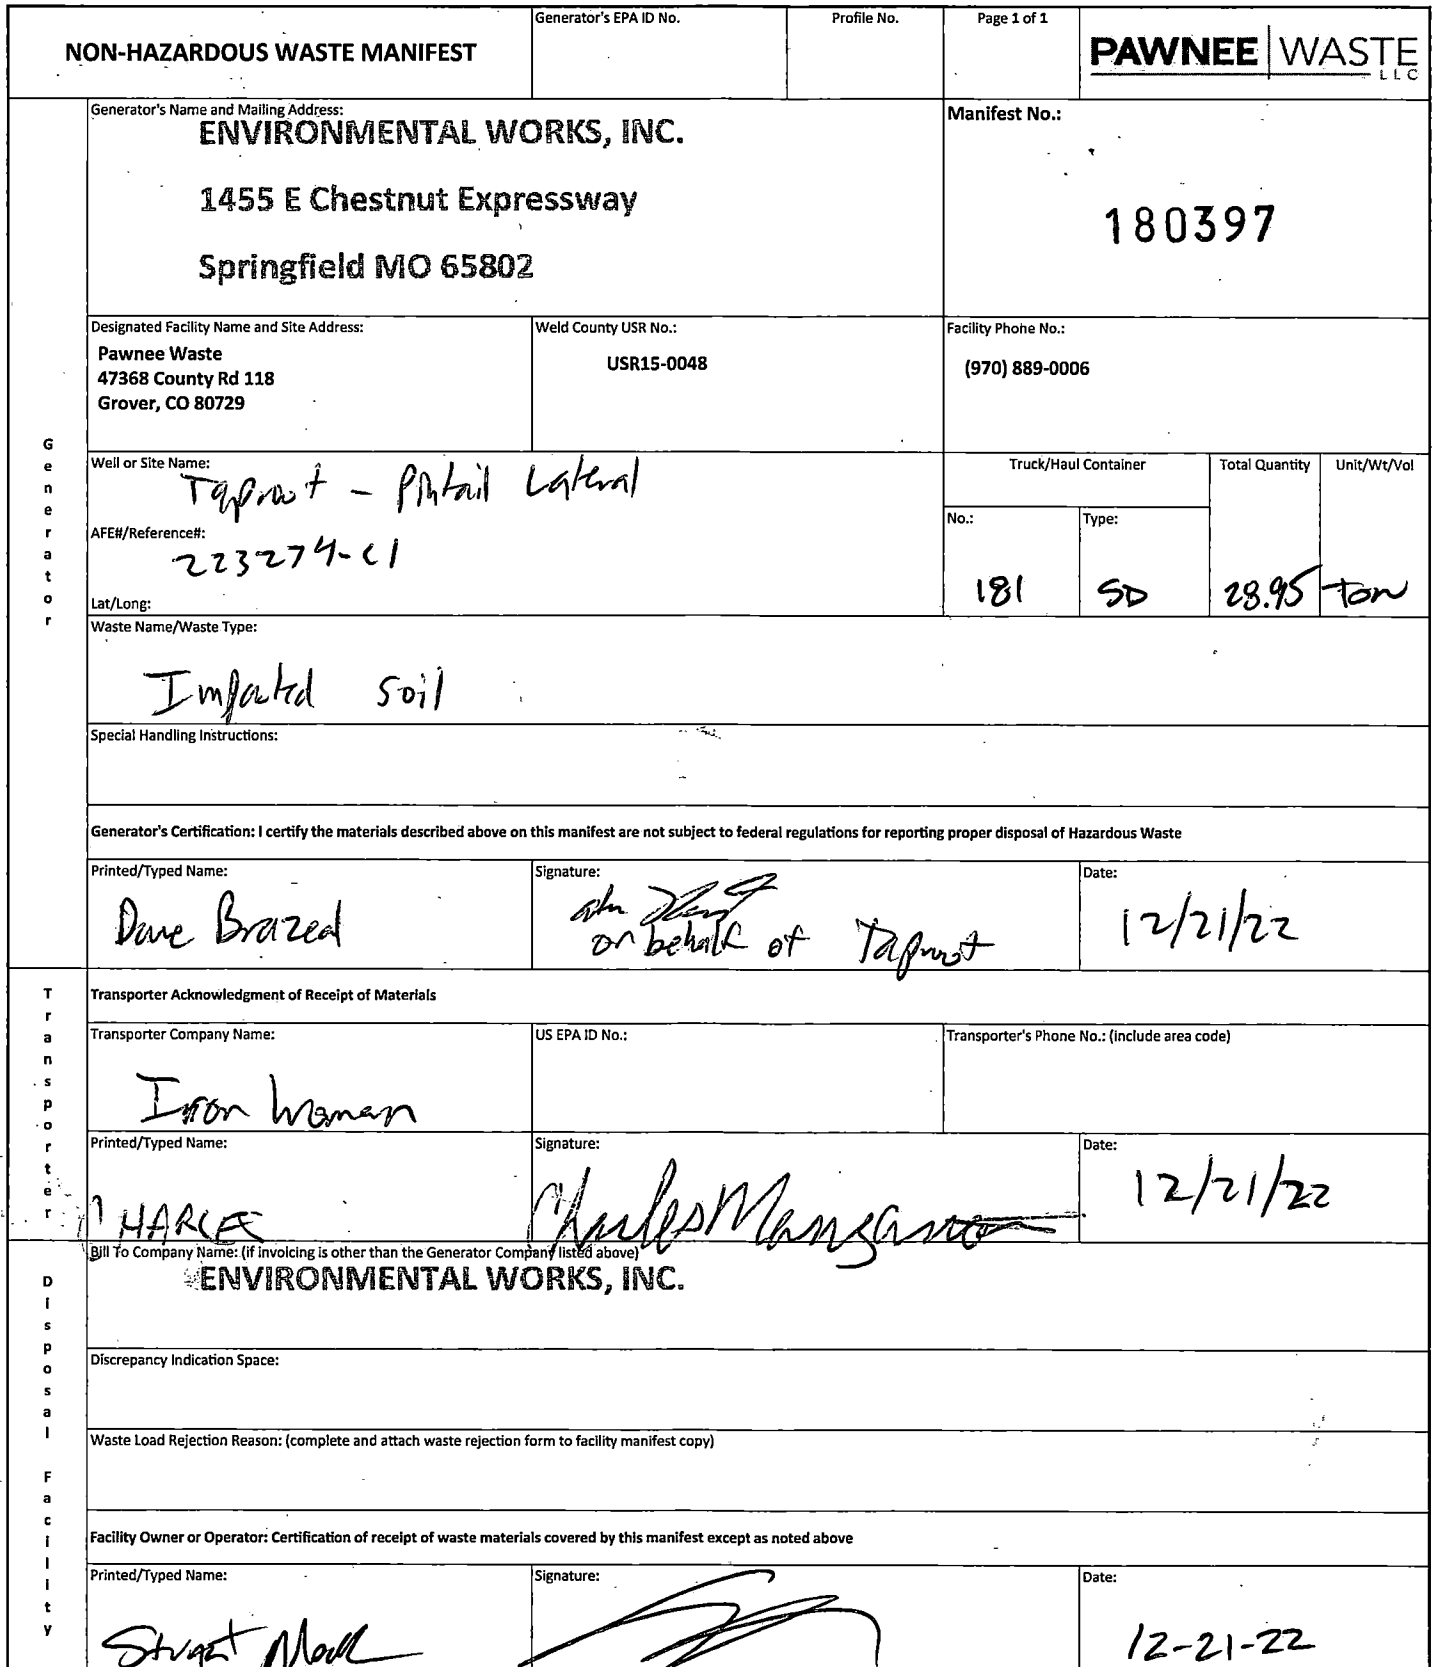 NON-HAZARDOUS WASTE MANIFEST
Generator's EPA ID No.
Profile No.
Page 1 of 1
PAWNEE WASTE
LLC
Generator's Name and Mailing Address:
ENVIRONMENTAL WORKS, INC.
1455 E Chestnut Expressway
Springfield MO 65802
Manifest No.:
180397
Designated Facility Name and Site Address:
Pawnee Waste
47368 County Rd 118
Grover, CO 80729
Weld County USR No.:
USR15-0048
Facility Phone No.:
(970) 889-0006
Generator
Well or Site Name:
Taproot - Pintail Lateral
AFE#/Reference#:
223274-C1
Lat/Long:
Truck/Haul Container
Total Quantity
Unit/Wt/Vol
No.:
Type:
181
SD
28.95
Ton
Waste Name/Waste Type:
Impacted soil
Special Handling Instructions:
Generator's Certification: I certify the materials described above on this manifest are not subject to federal regulations for reporting proper disposal of Hazardous Waste
Printed/Typed Name:
Dave Brazeal
Signature:
on behalf of Taproot
Date:
12/21/22
Transporter
Transporter Acknowledgment of Receipt of Materials
Transporter Company Name:
Iron Woman
US EPA ID No.:
Transporter's Phone No.: (include area code)
Printed/Typed Name:
Signature:
Charles Mangano
Date:
12/21/22
Disposal Facility
Bill To Company Name: (if invoicing is other than the Generator Company listed above)
ENVIRONMENTAL WORKS, INC.
Discrepancy Indication Space:
Waste Load Rejection Reason: (complete and attach waste rejection form to facility manifest copy)
Facility Owner or Operator: Certification of receipt of waste materials covered by this manifest except as noted above
Printed/Typed Name:
Stuart Mock
Signature:
Date:
12-21-22